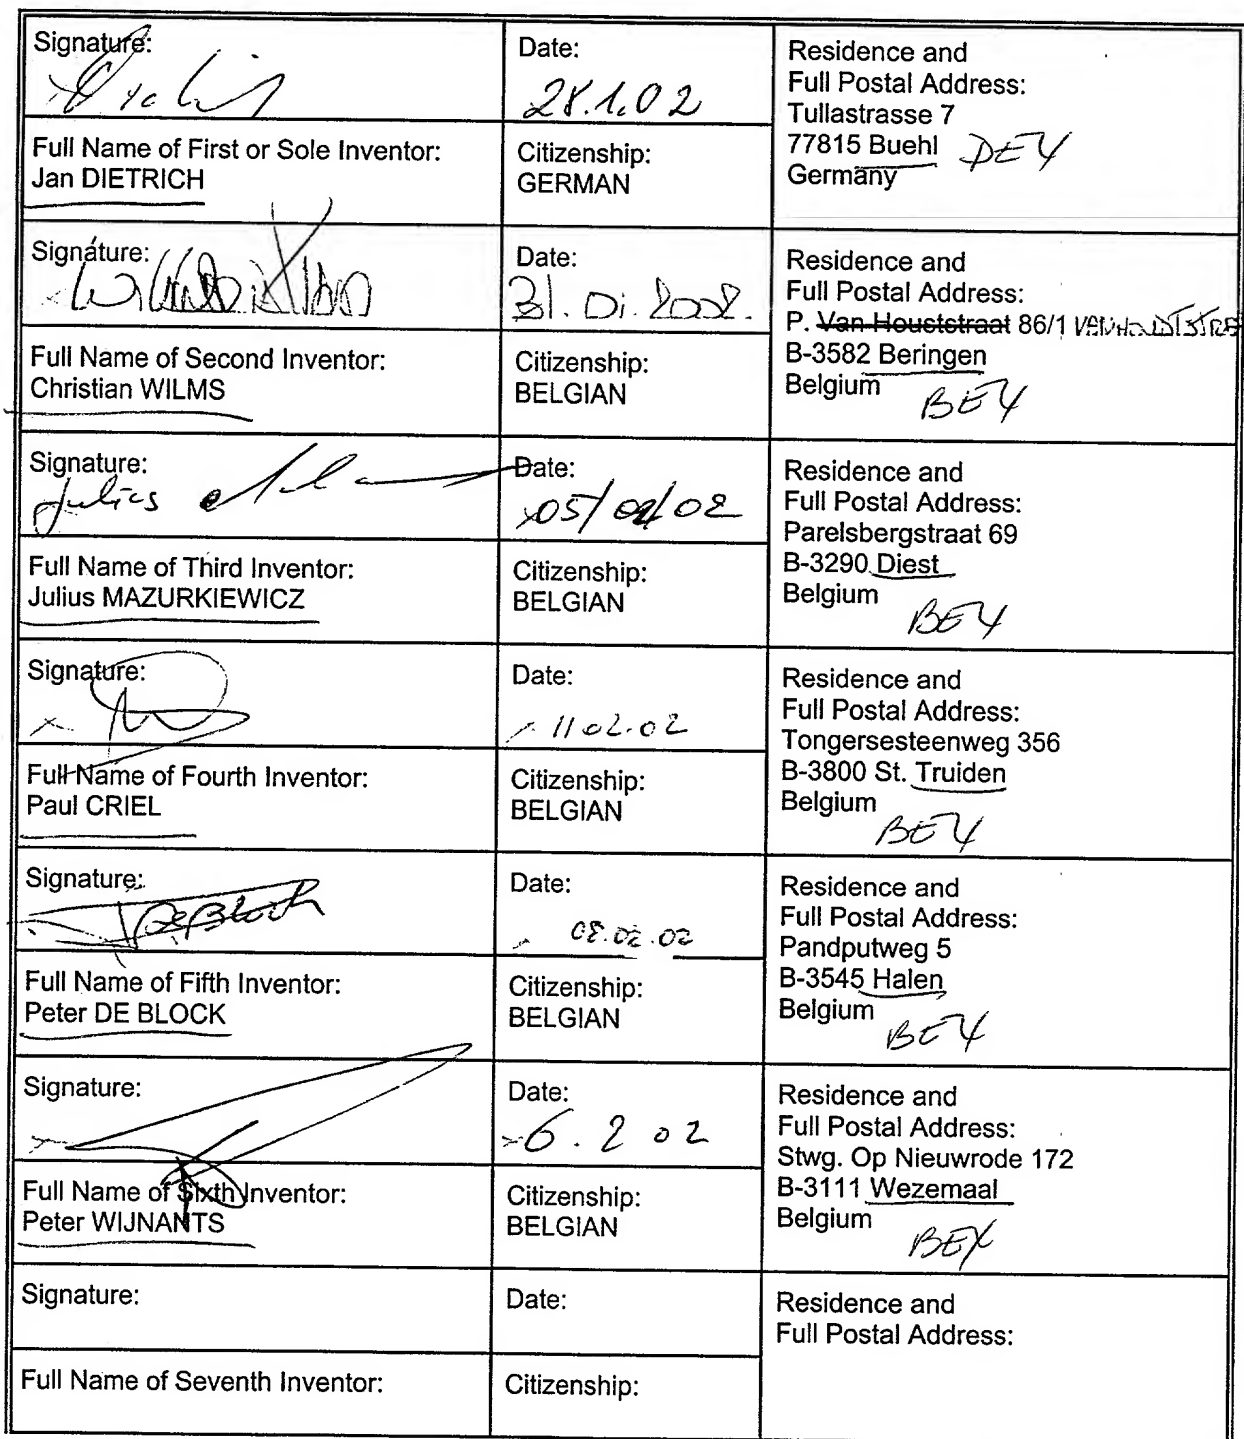 Signature:
Date:
28.1.02
Residence and
Full Postal Address:
Tullastrasse 7
77815 Buehl DEX
Germany
Full Name of First or Sole Inventor:
Jan DIETRICH
Citizenship:
GERMAN
Signature:
Date:
31.01.2002.
Residence and
Full Postal Address:
P. Van Houststraat 86/1
B-3582 Beringen
Belgium BEX
Full Name of Second Inventor:
Christian WILMS
Citizenship:
BELGIAN
Signature:
Julius
Date:
05/02/02
Residence and
Full Postal Address:
Parelsbergstraat 69
B-3290 Diest
Belgium BEX
Full Name of Third Inventor:
Julius MAZURKIEWICZ
Citizenship:
BELGIAN
Signature:
Date:
11.02.02
Residence and
Full Postal Address:
Tongersesteenweg 356
B-3800 St. Truiden
Belgium BEX
Full Name of Fourth Inventor:
Paul CRIEL
Citizenship:
BELGIAN
Signature:
DeBlock
Date:
08.02.02
Residence and
Full Postal Address:
Pandputweg 5
B-3545 Halen
Belgium BEX
Full Name of Fifth Inventor:
Peter DE BLOCK
Citizenship:
BELGIAN
Signature:
Date:
6.2 02
Residence and
Full Postal Address:
Stwg. Op Nieuwrode 172
B-3111 Wezemaal
Belgium BEX
Full Name of Sixth Inventor:
Peter WIJNANTS
Citizenship:
BELGIAN
Signature:
Date:
Residence and
Full Postal Address:
Full Name of Seventh Inventor:
Citizenship: